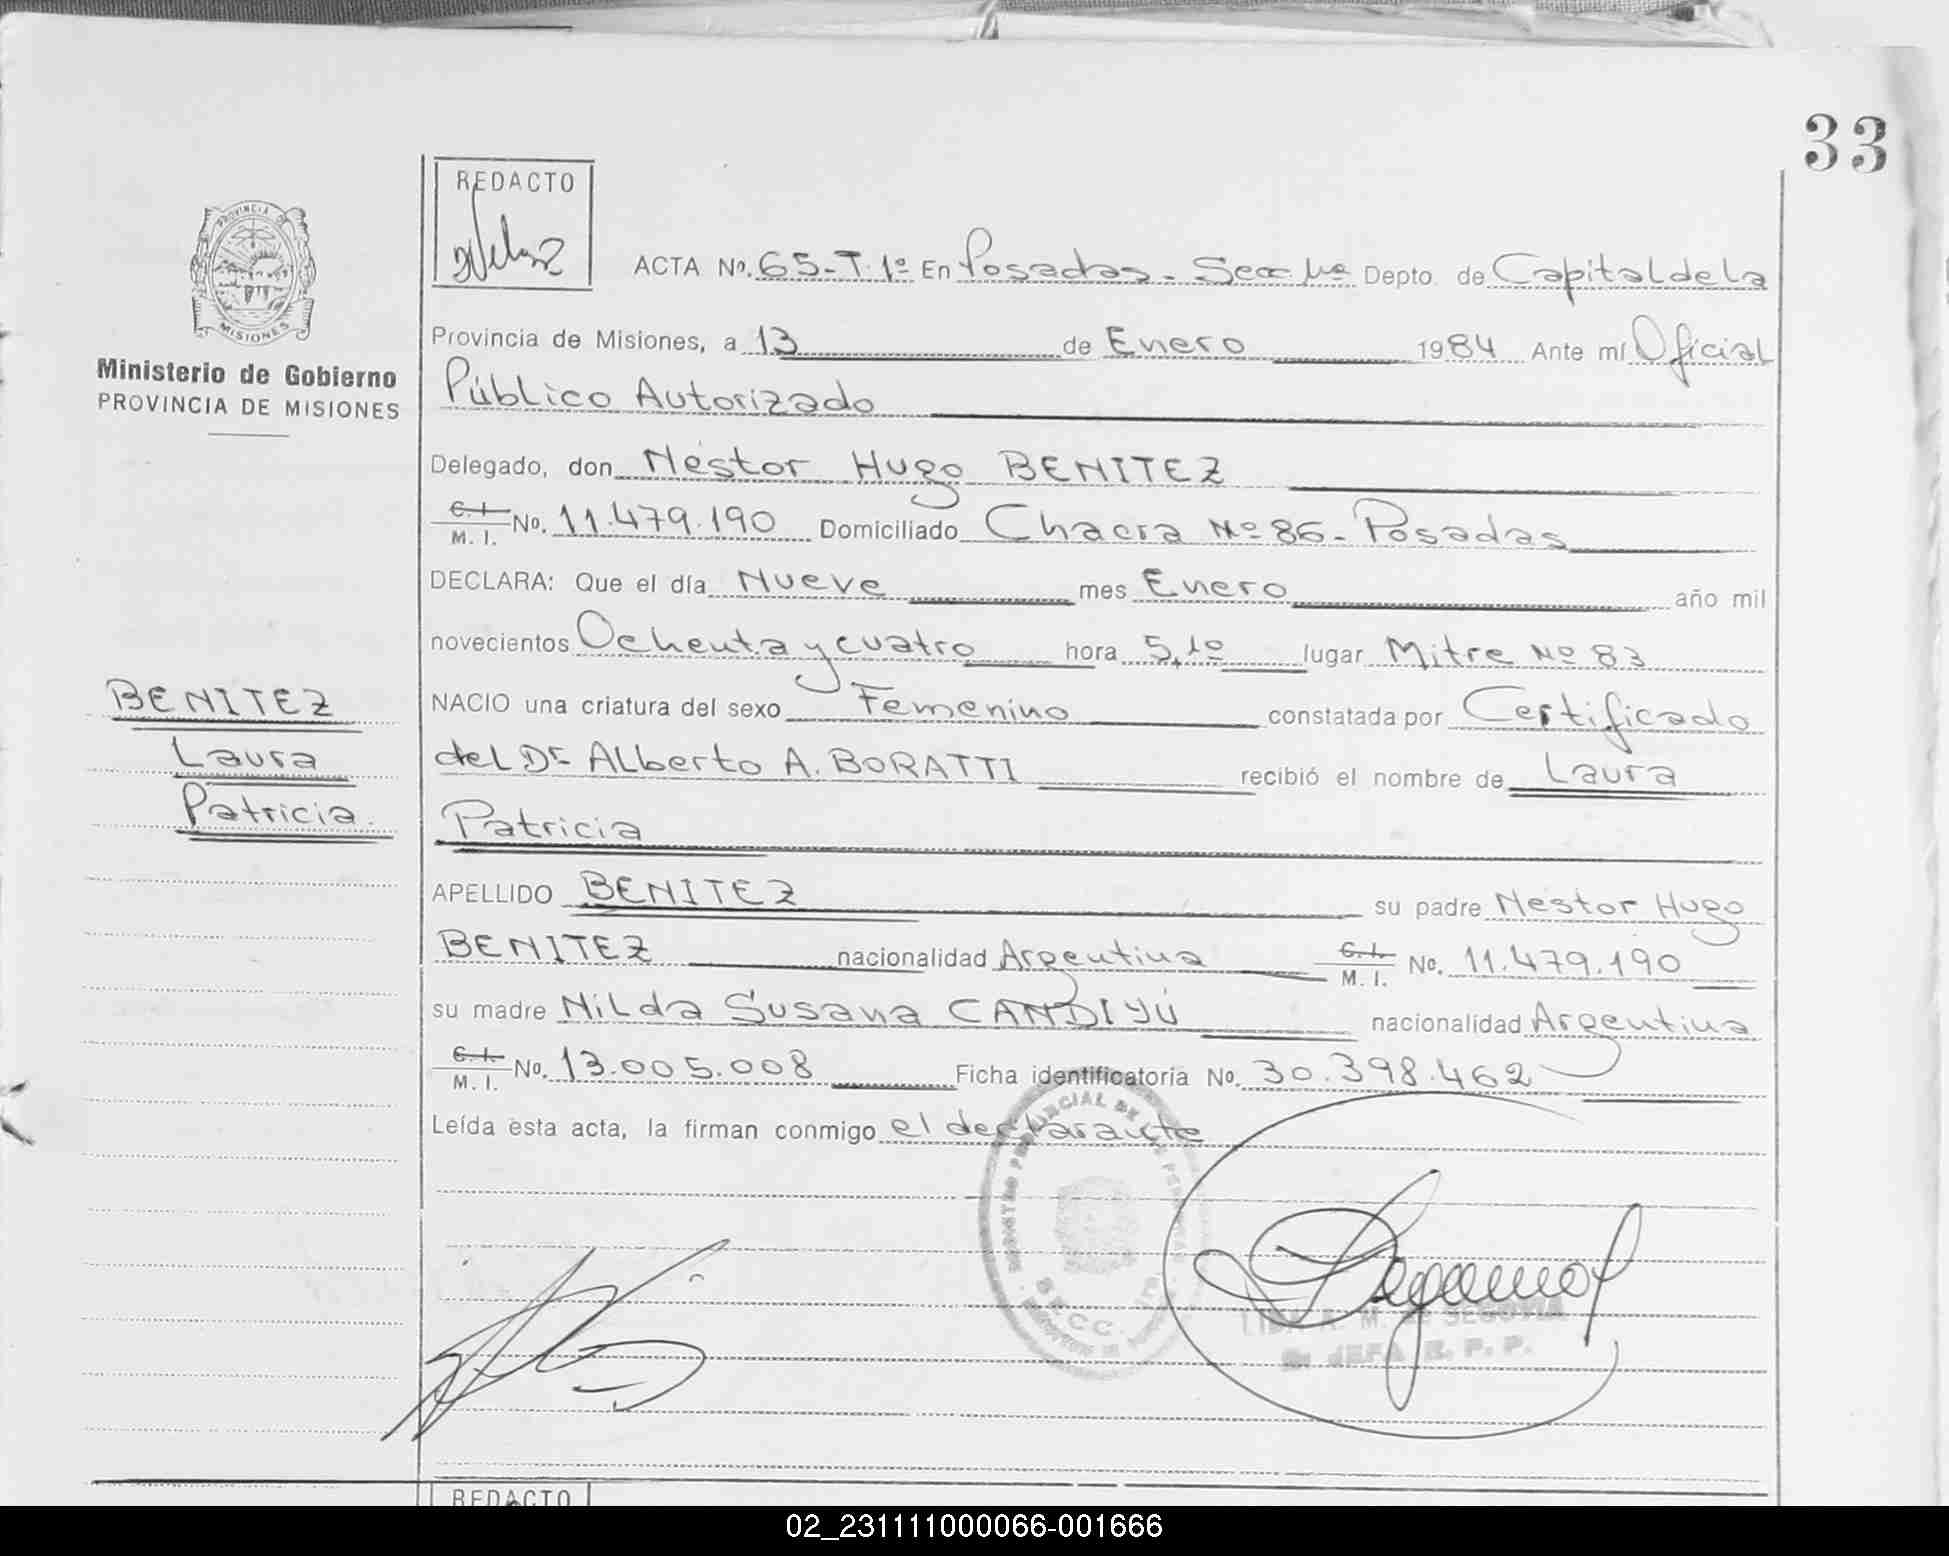 33
REDACTO
PROVINCIA DE
MISIONES
Ministerio de Gobierno
PROVINCIA DE MISIONES
ACTA No. 65-T.1º En Posadas- Secc 1ra Depto. de Capital de la
Provincia de Misiones, a 13 de Enero 1984 Ante mí Oficial
Público Autorizado
Delegado, don Néstor Hugo BENITEZ
C.I. M. I. No. 11.479.190 Domiciliado Chacra Nº 86- Posadas
DECLARA: Que el día Nueve mes Enero año mil
novecientos Ochenta y cuatro hora 5,1º lugar Mitre Nº 83
NACIO una criatura del sexo Femenino constatada por Certificado
del Dr. Alberto A. BORATTI recibió el nombre de Laura
Patricia
BENITEZ
Laura
Patricia.
APELLIDO BENITEZ su padre Néstor Hugo
BENITEZ nacionalidad Argentina C.I. M. I. No. 11.479.190
su madre Nilda Susana CANDIYÚ nacionalidad Argentina
C.I. M. I. No. 13.005.008 Ficha identificatoria No. 30.398.462
Leída esta acta, la firman conmigo el declarante
REGISTRO PROVINCIAL DE
SECC.
M. de SEGOVIA
JEFA R. P. P.
REDACTO
02_231111000066-001666